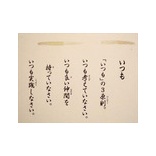 いつも
「いつも」の3原則
いつも考えていなさい。
いつも良い仲間を
持っていなさい。
いつも実践しなさい。